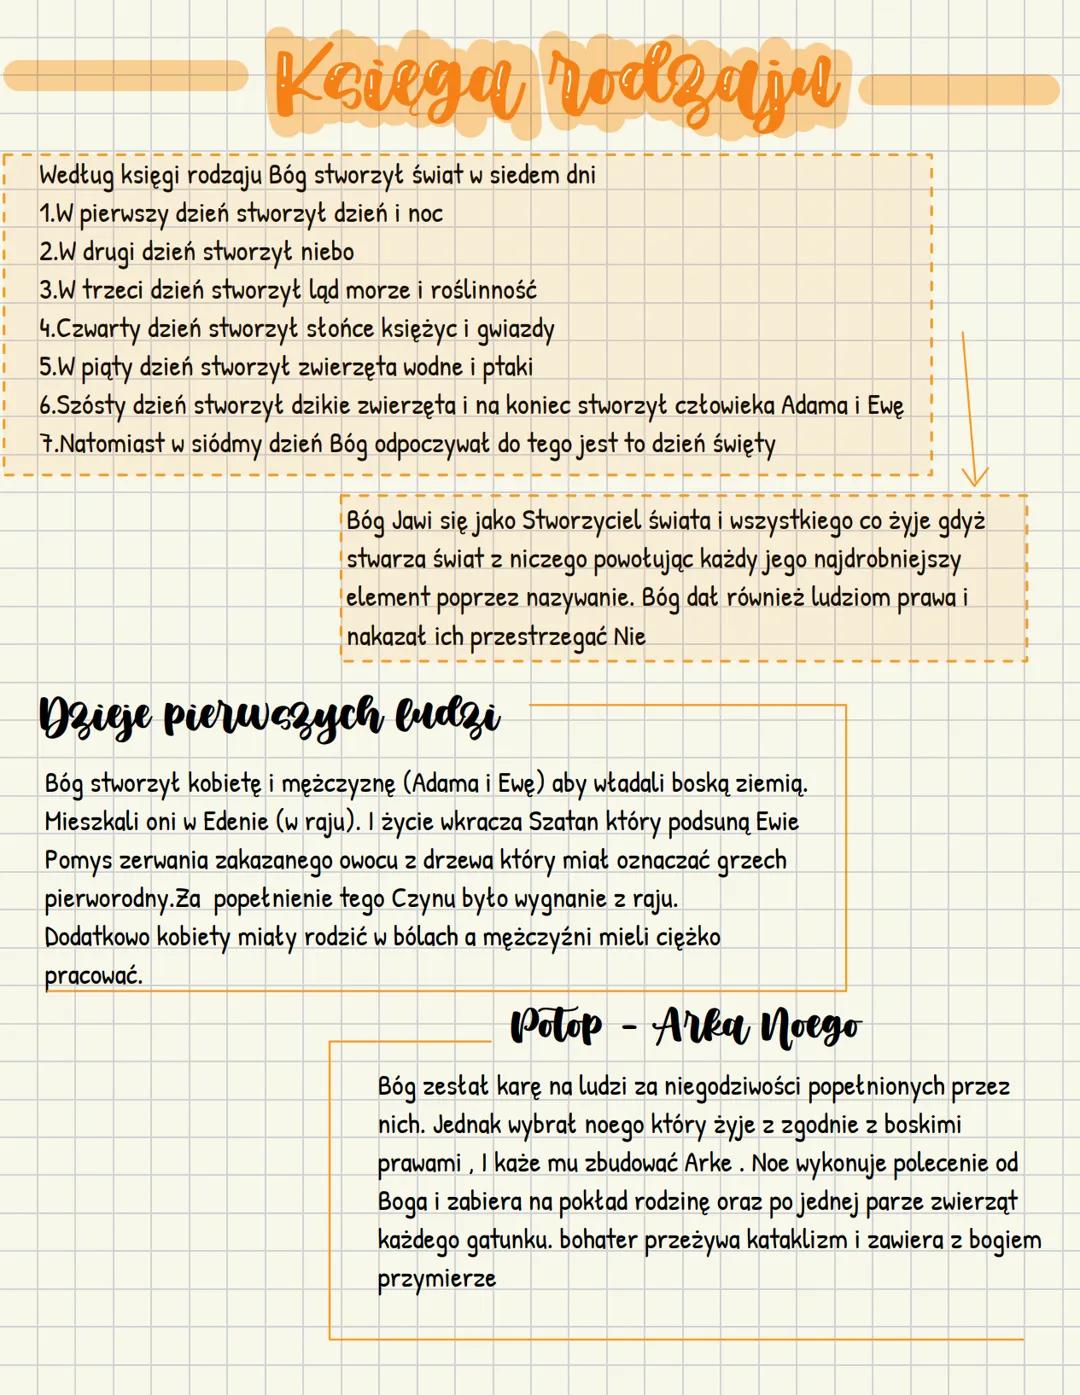 Księga rodzaju
Według księgi rodzaju Bóg stworzył świat w siedem dni
1.W pierwszy dzień stworzył dzień i noc
2.W drugi dzień stworzył niebo
3.W trzeci dzień stworzył ląd morze i roślinność
4.Czwarty dzień stworzył słońce księżyc i gwiazdy
5.W piąty dzień stworzył zwierzęta wodne i ptaki
6.Szósty dzień stworzył dzikie zwierzęta i na koniec stworzył człowieka Adama i Ewę
7.Natomiast w siódmy dzień Bóg odpoczywał do tego jest to dzień święty
Bóg Jawi się jako Stworzyciel świata i wszystkiego co żyje gdyż
stwarza świat z niczego powołując każdy jego najdrobniejszy
element poprzez nazywanie. Bóg dał również ludziom prawa i
nakazał ich przestrzegać Nie
Dzieje pierwszych ludzi
Bóg stworzył kobietę i mężczyznę (Adama i Ewę) aby władali boską ziemią.
Mieszkali oni w Edenie (w raju). I życie wkracza Szatan który podsuną Ewie
Pomys zerwania zakazanego owocu z drzewa który miał oznaczać grzech
pierworodny.Za popełnienie tego Czynu było wygnanie z raju.
Dodatkowo kobiety miały rodzić w bólach a mężczyźni mieli ciężko
pracować.
Potop - Arka Noego
Bóg zesłał karę na ludzi za niegodziwości popełnionych przez
nich. Jednak wybrał noego który żyje z zgodnie z boskimi
prawami , I każe mu zbudować Arke . Noe wykonuje polecenie od
Boga i zabiera na pokład rodzinę oraz po jednej parze zwierząt
każdego gatunku. bohater przeżywa kataklizm i zawiera z bogiem
przymierze